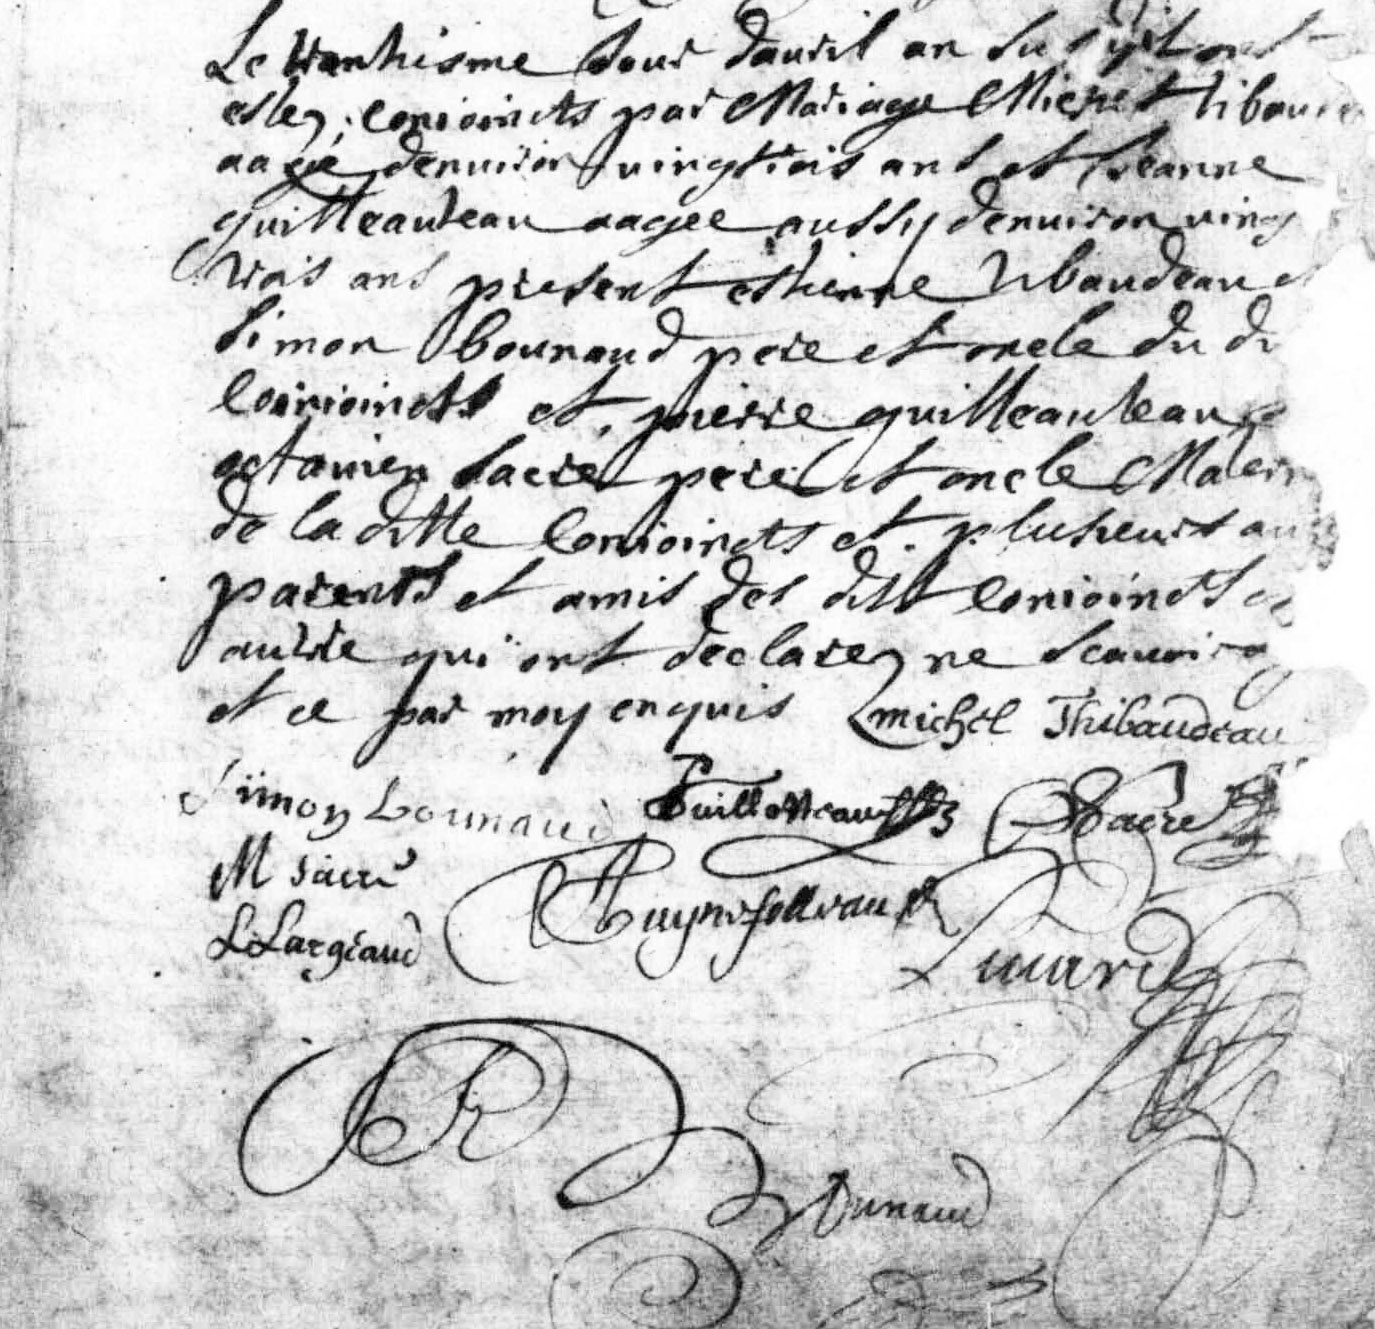 Le trantiesme Jour dauril an Susyit ont
estez conioincts par Mariage Michel tibaude
aagé denuiron vingttrois ans et Jeanne
guilleauteau aagee aussy denuiron uing
trois ans present estienne tibaudeau et
Simon bounaud pere et oncle du di
Conioincts et pierre guilleauteau
octauien Sacre pere et oncle Matern
de la ditte Conioincts et plusieurs au
parents et amis des dits Conioincts
autre qui ont declarez ne scauoir
et ce par moy enquis Michel Thibaudeau
Simon bounaud Guilloteau Sacre
M Sacré
L Largeaud
bunaud